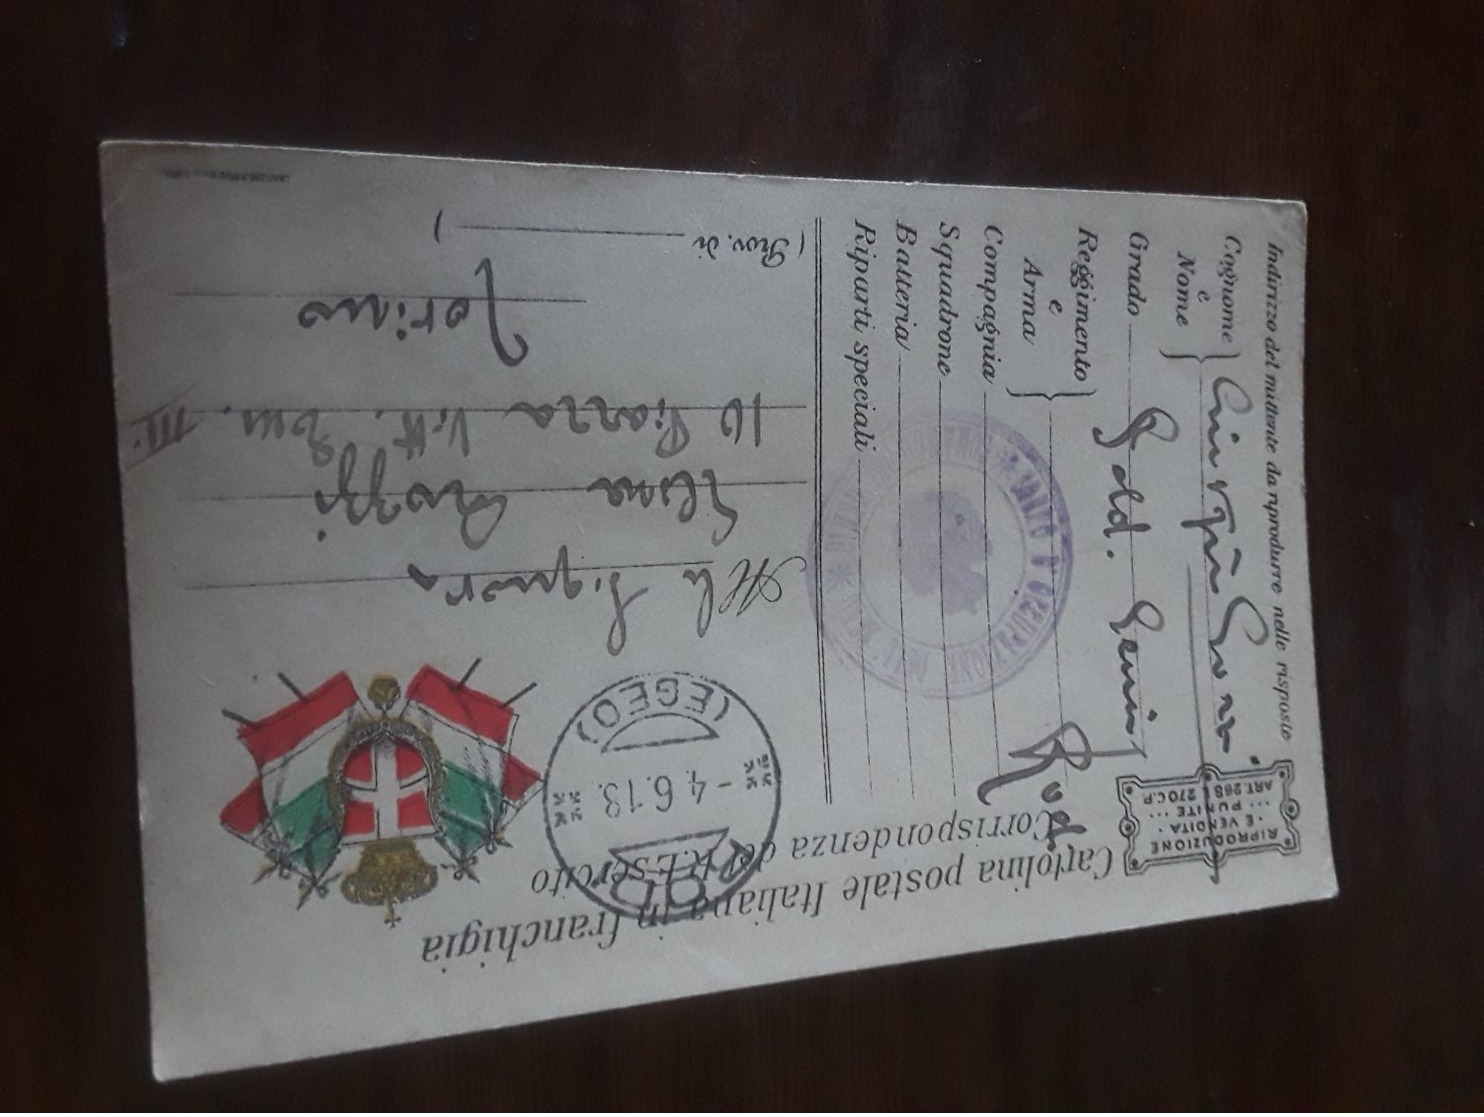 Cartolina postale Italiana in franchigia
Corrispondenza del R. Esercito
RIPRODUZIONE
E VENDITA
PUNITE
ART. 268 270 C.P.
RODI
-4.6.13.
(EGEO)
Alla Signora
Elena
10 Piazza Vitt. Em. III.
Torino
(Prov. di )
Indirizzo del mittente da riprodurre nelle risposte
Cognome
e
Nome
Grado Sold. Genio
Reggimento
e
Arma
Compagnia Rodi
Squadrone
Batteria
Riparti speciali